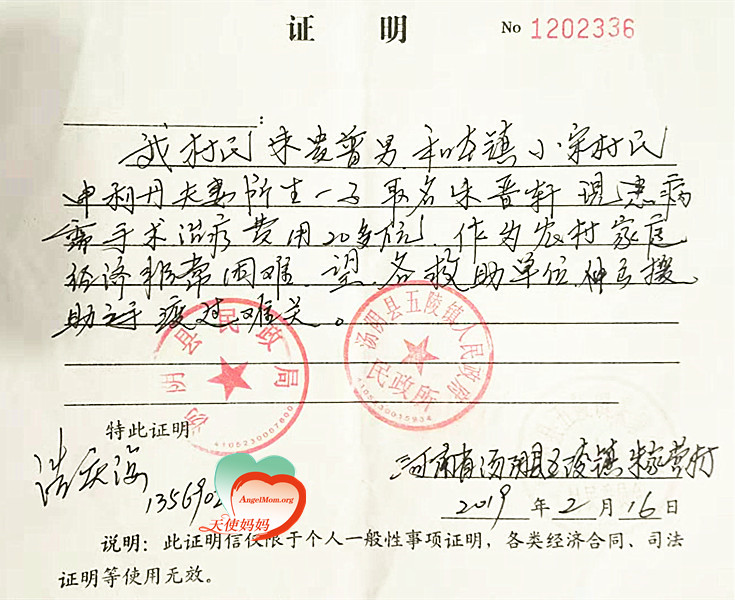 证 明
No 1202336
:
我村民朱贵普男和本镇小宋村民
申利丹夫妻所生一子取名朱晋轩现患病
需手术治疗费用20多万 作为农村家庭
经济非常困难、望、各救助单位伸出援
助之手渡过难关。
汤阴县民政局
4105230007600
汤阴县五陵镇人民政府
民政所
4105230015934
特此证明
河南省汤阴县五陵镇朱家营村
1356902
AngelMom.org
天使妈妈
2019 年 2 月 16 日
说明：此证明信仅限于个人一般性事项证明，各类经济合同、司法
证明等使用无效。